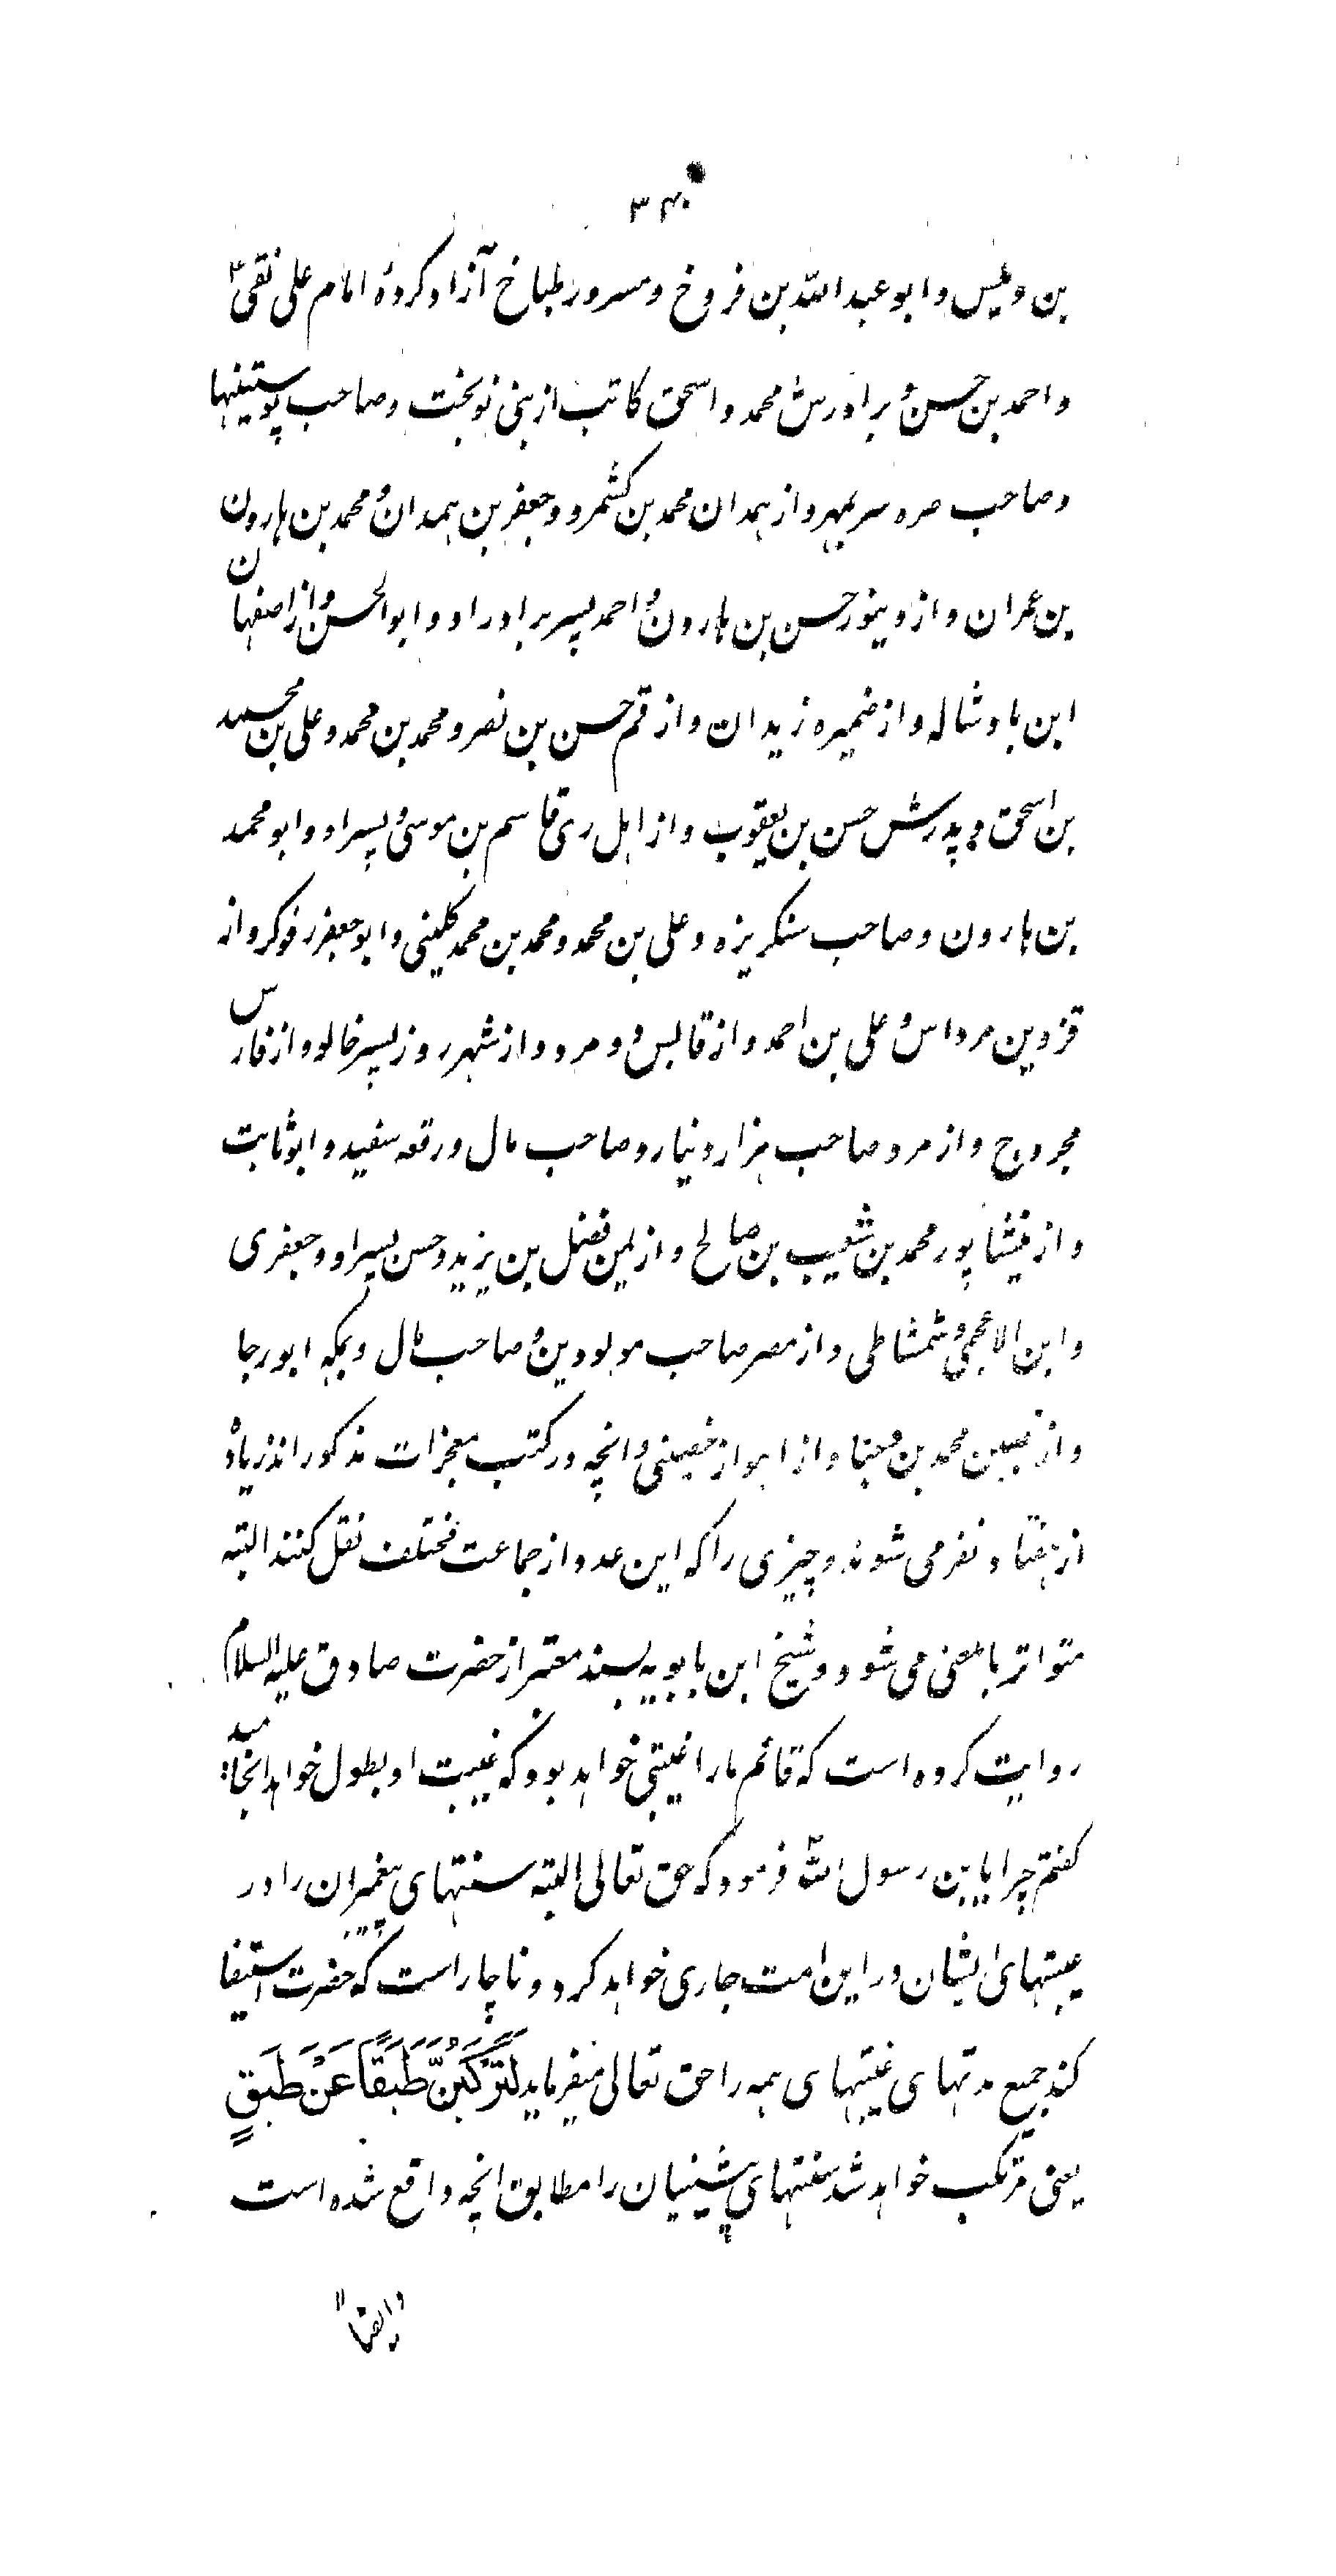 ۳۴۰
بن ولیس و ابو عبد الله بن فروخ و مسرور طباخ آزاد کردهٔ امام علی نقیؑ
و احمد بن حسن و برادرش محمد و اسحق کاتب از بنی نوبخت و صاحب پوستینها
و صاحب صره سر بمهر و از همدان محمد بن کشمرد و جعفر بن همدان و محمد بن هارون
بن عمران و از دینور حسن بن هارون و احمد پسر برادر او و ابو الحسن و از اصفهان
ابن بادشاله و از ضمیره زیدان و از قم حسن بن نصر و محمد بن محمد و علی بن محمد
بن اسحق و پدرش حسن بن یعقوب و از اهل ری قاسم بن موسی و پسر او و ابو محمد
بن هارون و صاحب سنکریزه و علی بن محمد و محمد بن محمد کلینی و ابو جعفر رفوکر و از
قزوین مرداس و علی بن احمد و از قابس دو مرد و از شهر روز پسر خالو و از فارس
مجروح و از مرو صاحب هزار دینار و صاحب مال و رقعه سفید و ابو ثابت
و از نیشاپور محمد بن شعیب بن صالح و از یمن فضل بن یزید و حسن پسر او و جعفری
و ابن الاعجمی و شمشاطی و از مصر صاحب مولودین و صاحب مال و بمکه ابو رجا
و از نصیبین محمد بن وجنا و از اهواز خصینی و انچه در کتب معجزات مذکور اند زیاده
از هفتاد نفر می شوند و چیزی را که این عدد از جماعت مختلف نقل کنند البته
متواتر بالمعنی می شود و شیخ ابن بابویه بسند معتبر از حضرت صادق علیه السلام
روایت کرده است که قائم ما را غیبتی خواهد بود که غیبت او بطول خواهد انجامید
کفتم چرا یابن رسول الله فرمود که حق تعالی البته سنتهای پیغمبران را در
غیبتهای ایشان در این امت جاری خواهد کرد و ناچار است که حضرت استیفا
کند جمیع مدتهای غیبتهای همه را حق تعالی میفرماید لَتَرْكَبُنَّ طَبَقًا عَنْ طَبَقٍ
یعنی مرتکب خواهد شد سنتهای پیشینیان را مطابق انچه واقع شده است
و ایضا